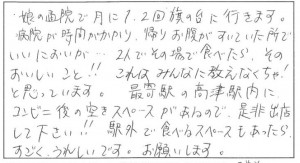 娘の通院で月に1、2回旗の台に行きます。
病院が時間がかかり、帰りお腹がすいた所で
いいにおいが… 2人でその場で食べたら、その
おいしいこと!! これは、みんなに教えなくちゃ!
と思っています。 最寄駅の高津駅内に
コンビニ後の空きスペースがあるので、是非出店
して下さい!! 駅外で食べるスペースもあったら、
すごくうれしいです。お願いします。